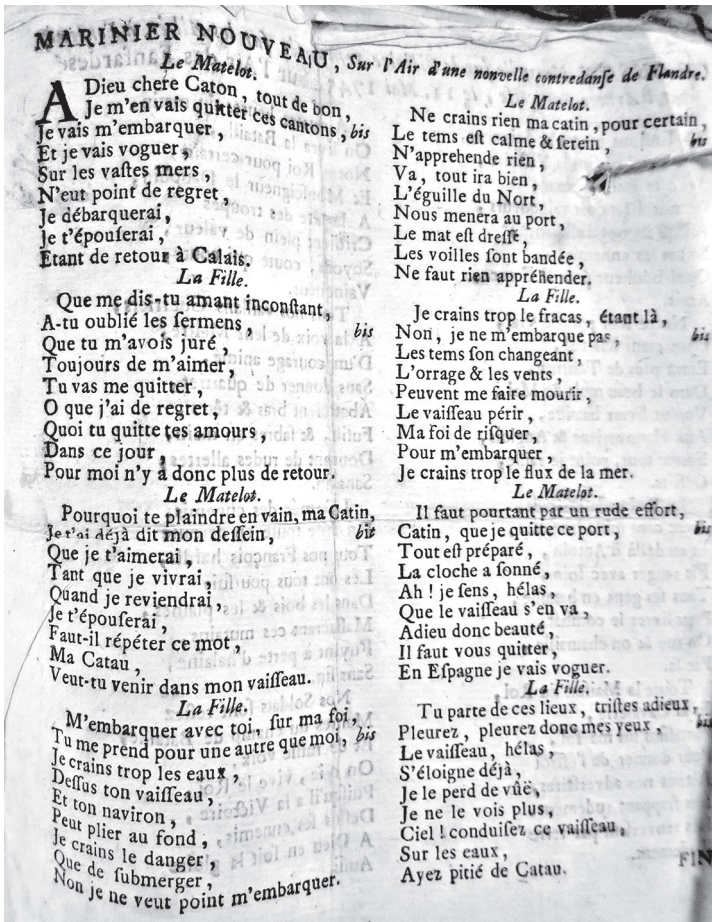 MARINIER NOUVEAU, Sur l'Air d'une nonvelle contredanſe de Flandre.
Le Matelot.
A Dieu chere Caton, tout de bon,
Je m'en vais quitter ces cantons, bis
Je vais m'embarquer,
Et je vais voguer,
Sur les vaſtes mers,
N'eut point de regret,
Je débarquerai,
Je t'épouſerai,
Etant de retour à Calais.
La Fille.
Que me dis-tu amant inconſtant,
A-tu oublié les ſermens, bis
Que tu m'avois juré,
Toujours de m'aimer,
Tu vas me quitter,
O que j'ai de regret,
Quoi tu quitte tes amours,
Dans ce jour,
Pour moi n'y a donc plus de retour.
Le Matelot.
Pourquoi te plaindre en vain, ma Catin,
Je t'ai déjà dit mon deſſein, bis
Que je t'aimerai,
Tant que je vivrai,
Quand je reviendrai,
Je t'épouſerai,
Faut-il répéter ce mot,
Ma Catau,
Veut-tu venir dans mon vaiſſeau.
La Fille.
M'embarquer avec toi, ſur ma foi,
Tu me prend pour une autre que moi, bis
Je crains trop les eaux,
Deſſus ton vaiſſeau,
Et ton naviron,
Peut plier au fond,
Je crains le danger,
Que de ſubmerger,
Non je ne veut point m'embarquer.
Le Matelot.
Ne crains rien ma catin, pour certain,
Le tems eſt calme & ſerein, bis
N'apprehende rien,
Va, tout ira bien,
L'éguille du Nort,
Nous menera au port,
Le mat eſt dreſſé,
Les voilles ſont bandée,
Ne faut rien appréhender.
La Fille.
Je crains trop le fracas, étant là,
Non, je ne m'embarque pas, bis
Les tems ſon changeant,
L'orrage & les vents,
Peuvent me faire mourir,
Le vaiſſeau périr,
Ma foi de riſquer,
Pour m'embarquer,
Je crains trop le flux de la mer.
Le Matelot.
Il faut pourtant par un rude effort,
Catin, que je quitte ce port, bis
Tout eſt préparé,
La cloche a ſonné,
Ah ! je ſens, hélas,
Que le vaiſſeau s'en va,
Adieu donc beauté,
Il faut vous quitter,
En Eſpagne je vais voguer.
La Fille.
Tu parte de ces lieux, triſtes adieux,
Pleurez, pleurez donc mes yeux, bis
Le vaiſſeau, hélas,
S'éloigne déjà,
Je le perd de vûë,
Je ne le vois plus,
Ciel ! conduiſez ce vaiſſeau,
Sur les eaux,
Ayez pitié de Catau.
FIN